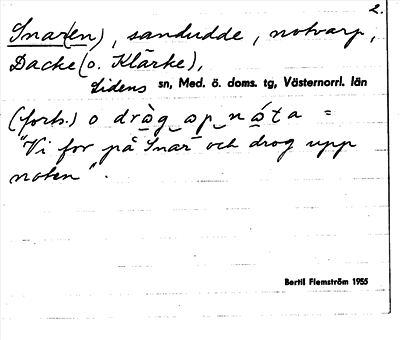 2.
Snar(en), sandudde, notvarp,
Dacke (o. Klärke),
Lidens sn, Med. ö. doms. tg, Västernorrl. län
(forts.) o dròg op nóta =
"Vi for på Snar och drog upp
noten".
Bertil Flemström 1955